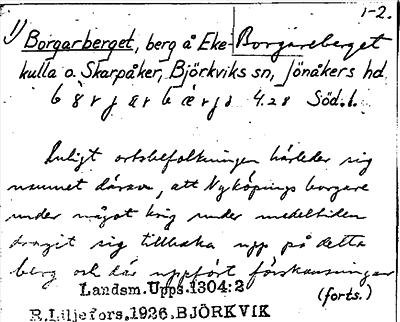 1-2.
1) Borgarberget, berg å Eke- Borgareberget
kulla o. Skarpåker, Björkviks sn, Jönåkers hd.
4.28 Söd.l.
Enligt ortsbefolkningen härleder sig
namnet därav, att Nyköpings borgare
under något krig under medeltiden
dragit sig tillbaka upp på detta
berg och där uppfört förskansningar
(forts.)
Landsm. Upps. 1304:2
R. Liljefors, 1926. BJÖRKVIK